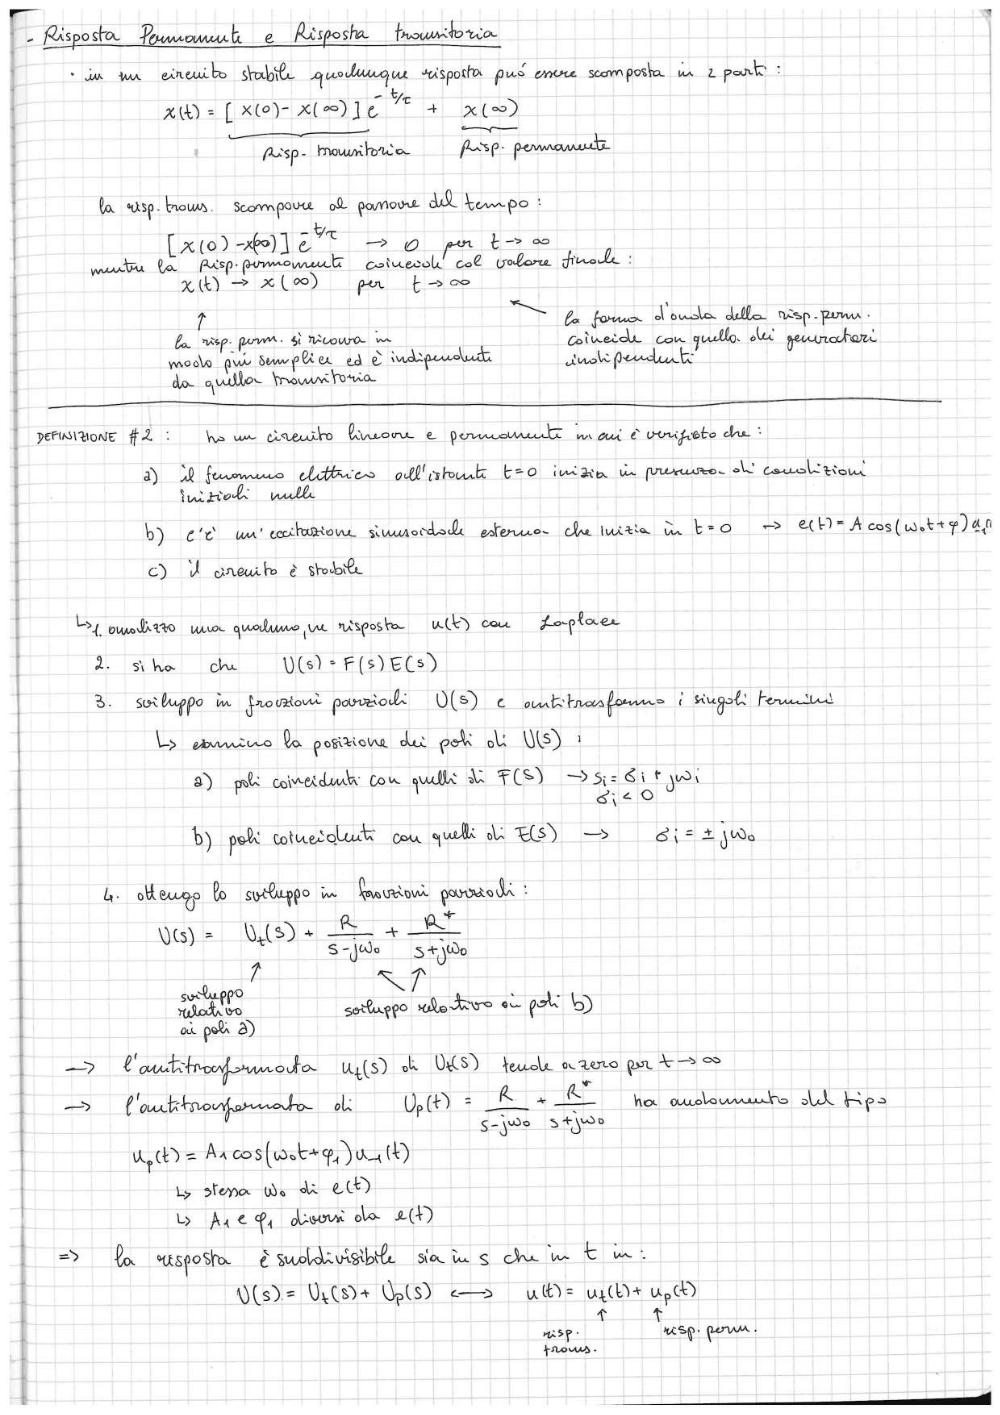 - Risposta Permanente e Risposta transitoria
· in un circuito stabile qualunque risposta può essere scomposta in 2 parti :
x(t) = [ x(0) - x(∞) ] e^{-t/τ} + x(∞)
Risp. transitoria Risp. permanente
la risp. trans. scompare al passare del tempo :
[ x(0) - x(∞) ] e^{-t/τ} → 0 per t → ∞
mentre la Risp. permanente coincide col valore finale :
x(t) → x(∞) per t → ∞
↑
la risp. perm. si ricava in
modo più semplice ed è indipendente
da quella transitoria
la forma d'onda della risp. perm.
coincide con quella dei generatori
indipendenti
DEFINIZIONE #2 : ho un circuito lineare e permanente in cui è verificato che :
a) il fenomeno elettrico all'istante t=0 inizia in presenza di condizioni
iniziali nulle
b) c'è un'eccitazione sinusoidale esterna che inizia in t=0 → e(t) = A cos(ω₀t+φ)
c) il circuito è stabile
↳ 1. analizzo una qualunque risposta u(t) con Laplace
2. si ha che U(s) = F(s) E(s)
3. sviluppo in frazioni parziali U(s) e antitrasformo i singoli termini
↳ esamino la posizione dei poli di U(s) :
a) poli coincidenti con quelli di F(s) → sᵢ = σᵢ + jωᵢ
σᵢ < 0
b) poli coincidenti con quelli di E(s) → σᵢ = ± jω₀
4. ottengo lo sviluppo in frazioni parziali :
U(s) = Uₜ(s) + R/(s-jω₀) + R*/(s+jω₀)
sviluppo
relativo
ai poli a)
sviluppo relativo ai poli b)
→ l'antitrasformata uₜ(s) di Uₜ(s) tende a zero per t → ∞
→ l'antitrasformata di Uₚ(t) = R/(s-jω₀) + R*/(s+jω₀) ha andamento del tipo
uₚ(t) = A₁ cos(ω₀t+φ₁) u₋₁(t)
↳ stessa ω₀ di e(t)
↳ A₁ e φ₁ diversi da e(t)
⇒ la risposta è suddivisibile sia in s che in t in :
U(s) = Uₜ(s) + Uₚ(s) ⟷ u(t) = uₜ(t) + uₚ(t)
↑ ↑
risp.
trans.
risp. perm.